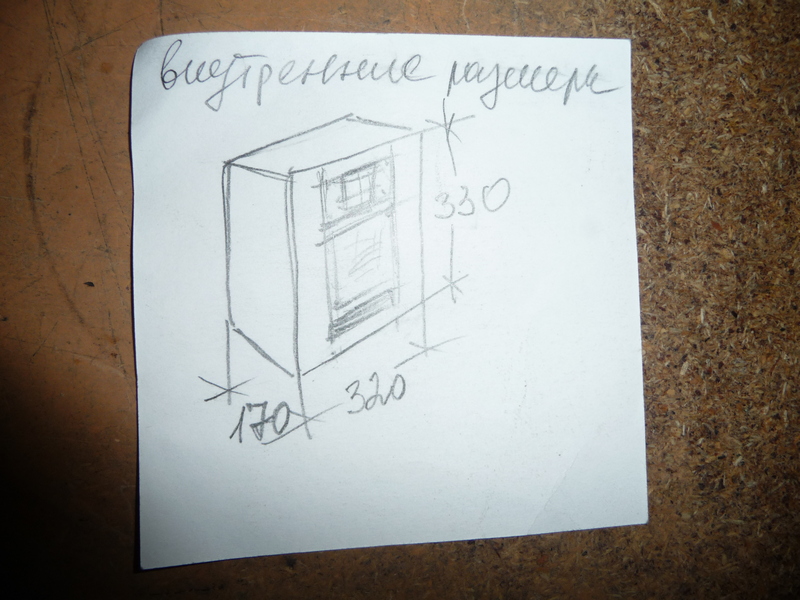 внутренние размеры
330
320
170